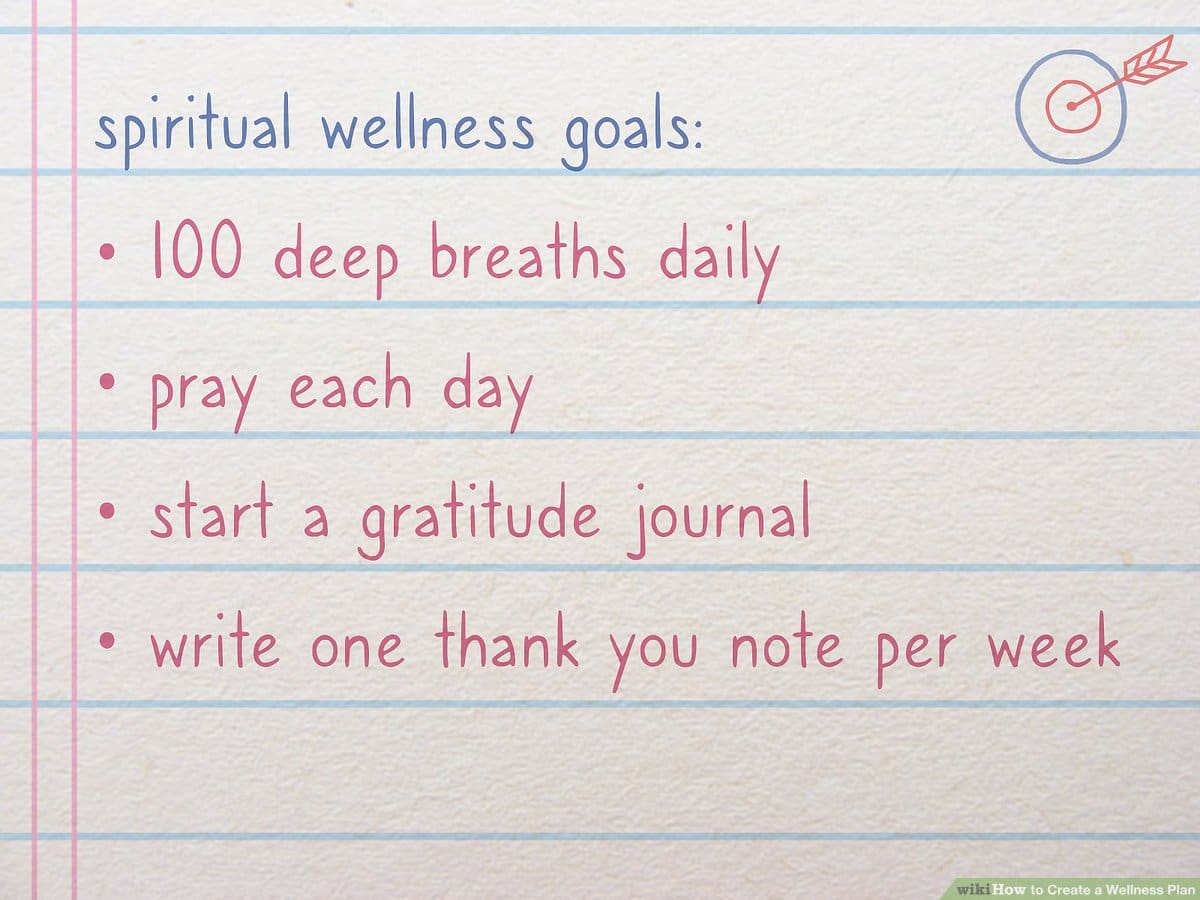 spiritual wellness goals:
• 100 deep breaths daily
• pray each day
• start a gratitude journal
• write one thank you note per week
wikiHow to Create a Wellness Plan